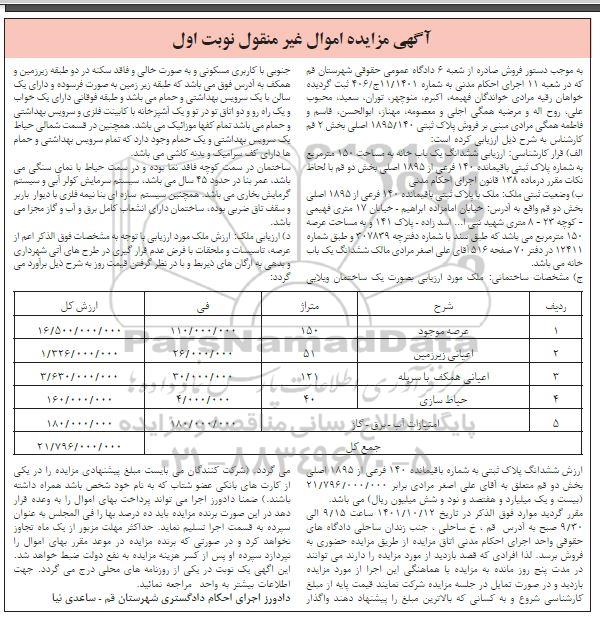 آگهی مزایده اموال غیر منقول نوبت اول
به موجب دستور فروش صادره از شعبه ۶ دادگاه عمومی حقوقی شهرستان قم
که در شعبه ۱۱ اجرای احکام مدنی به شماره ۱۱/۱۴۰۱ج/۴۰۶ ثبت گردیده
خواهان رقیه مرادی خواندگان فهیمه، اکبرم، منوچهر، توران، سعید، محبوب
علی، روح اله و مرضیه همگی اجلی و معصومه، مهناز، ابوالحسن، قاسم و
فاطمه همگی مرادی مبنی بر فروش پلاک ثبتی ۱۸۹۵/۱۴۰ اصلی بخش ۲ قم
کارشناس به شرح ذیل ارزیابی کرده است:
الف) قرار کارشناسی: ارزیابی ششدانگ یک باب خانه به مساحت ۱۵۰ مترمربع
به شماره پلاک ثبتی باقیمانده ۱۴۰ فرعی از ۱۸۹۵ اصلی بخش دو قم با لحاظ
نکات مقرر درماده ۱۳۸ قانون اجرای احکام مدنی
ب) وضعیت ثبتی ملک: ملک با پلاک ثبتی باقیمانده ۱۴۰ فرعی از ۱۸۹۵ اصلی
بخش دو قم واقع به آدرس: خیابان امامزاده ابراهیم - خیابان ۱۷ متری فهیمی
- کوچه ۲۳ - ۸ متری شهید بنی اسد زاده - پلاک ۱۴۱ و به مساحت عرصه
۱۵۰ مترمربع می باشد که طبق سند با شماره دفترچه ۳۰۷۸۳۹ و طبق شماره
۱۲۴۱۱ در دفتر ۷۰ صفحه ۵۱۶ آقای علی اصغر مرادی مالک ششدانگ یک باب
خانه می باشد.
ج) مشخصات ساختمانی: ملک مورد ارزیابی بصورت یک ساختمان ویلایی
جنوبی با کاربری مسکونی و به صورت خالی و فاقد سکنه در دو طبقه زیرزمین و
همکف به آدرس فوق می باشد که طبقه زیر زمین به صورت فرسوده و دارای یک
سالن با یک سرویس بهداشتی و حمام می باشد و طبقه فوقانی دارای یک خواب
و یک راه رو و دو اتاق تو در تو و یک آشپزخانه با کابینت فلزی و سرویس بهداشتی
و حمام می باشد تمام کفها موزائیک می باشد. همچنین در قسمت شمالی حیاط
یک سرویس بهداشتی و یک حمام وجود دارد که تمام سرویس بهداشتی و حمام
ها دارای کف سرامیک و بدنه کاشی می باشد
ساختمان در سمت کوچه فاقد نما بوده و در سمت حیاط با نمای سنگی می
باشد، عمر بنا در حدود ۴۵ سال می باشد، سیستم سرمایش کولر آبی و سیستم
گرمایش بخاری می باشد. همچنین سیستم سازه ای بنا نیمه فلزی با دیوار باربر
و سقف تاق ضربی بوده، ساختمان دارای انشعاب کامل برق و آب و گاز مجزا می
باشد.
د) ارزیابی ملک: ارزش ملک مورد ارزیابی با توجه به مشخصات فوق الذکر اعم از
عرصه، تاسیسات و ملحقات با فرض عدم قرار گیری در طرح های آتی شهرداری
و بدهی به ارگان های ذیربط و با در نظر گرفتن قیمت روز به شرح ذیل برآورد می
گردد:
ردیف شرح متراژ فی ارزش کل
۱ عرصه موجود ۱۵۰ ۱۱۰/۰۰۰/۰۰۰ ۱۶/۵۰۰/۰۰۰/۰۰۰
۲ اعیانی زیرزمین ۵۱ ۲۶/۰۰۰/۰۰۰ ۱/۳۲۶/۰۰۰/۰۰۰
۳ اعیانی همکف با سرپله ۱۲۱ ۳۰/۰۰۰/۰۰۰ ۳/۶۳۰/۰۰۰/۰۰۰
۴ حیاط سازی ۴۰ ۴/۰۰۰/۰۰۰ ۱۶۰/۰۰۰/۰۰۰
۵ امتیازات آب - برق - گاز ۱۸۰/۰۰۰/۰۰۰ ۱۸۰/۰۰۰/۰۰۰
جمع کل ۲۱/۷۹۶/۰۰۰/۰۰۰
ParsNamadData
پایگاه اطلاع رسانی مناقصه و مزایده
۰۲۱-۸۸۳۴۹۶۷۰-۵
ارزش ششدانگ پلاک ثبتی به شماره باقیمانده ۱۴۰ فرعی از ۱۸۹۵ اصلی
بخش دو قم متعلق به آقای علی اصغر مرادی برابر ۲۱/۷۹۶/۰۰۰/۰۰۰
(بیست و یک میلیارد و هفتصد و نود و شش میلیون ریال) می باشد.
مقرر گردید موارد فوق الذکر در تاریخ ۱۴۰۱/۱۰/۱۲ ساعت ۹/۱۵ الی
۹/۳۰ صبح به آدرس قم ، خ ساحلی ، جنب زندان ساحلی دادگاه های
حقوقی واحد اجرای احکام مدنی اتاق مزایده از طریق مزایده حضوری به
فروش برسد. لذا افرادی که قصد بازدید از مورد مزایده را دارند می توانند
در مدت پنج روز مانده به مزایده با هماهنگی این اجرا از مورد مزایده
بازدید و در صورت تمایل در جلسه مزایده شرکت نمایند قیمت پایه از مبلغ
کارشناسی شروع و به کسانی که بالاترین مبلغ را پیشنهاد دهند واگذار
می گردد. (شرکت کنندگان می بایست مبلغ پیشنهادی مزایده را در یکی
از کارت های بانکی عضو شتاب که به نام خود شخص باشد همراه داشته
باشند.) ضمنا دادورز اجرا می تواند پرداخت بهای اموال را به وعده قرار
دهد در این صورت برنده مزایده باید ده درصد بها را فی المجلس به عنوان
سپرده به قسمت اجرا تسلیم نماید. حداکثر مهلت مزبور از یک ماه تجاوز
نخواهد کرد و در صورتی که برنده مزایده در موعد مقرر بهای اموال را
نپردازد سپرده او پس از کسر هزینه مزایده به نفع دولت ضبط خواهد شد.
این آگهی یک نوبت در یکی از روزنامه های محلی درج می گردد. جهت
اطلاعات بیشتر به واحد مراجعه نمائید.
دادورز اجرای احکام دادگستری شهرستان قم - ساعدی نیا